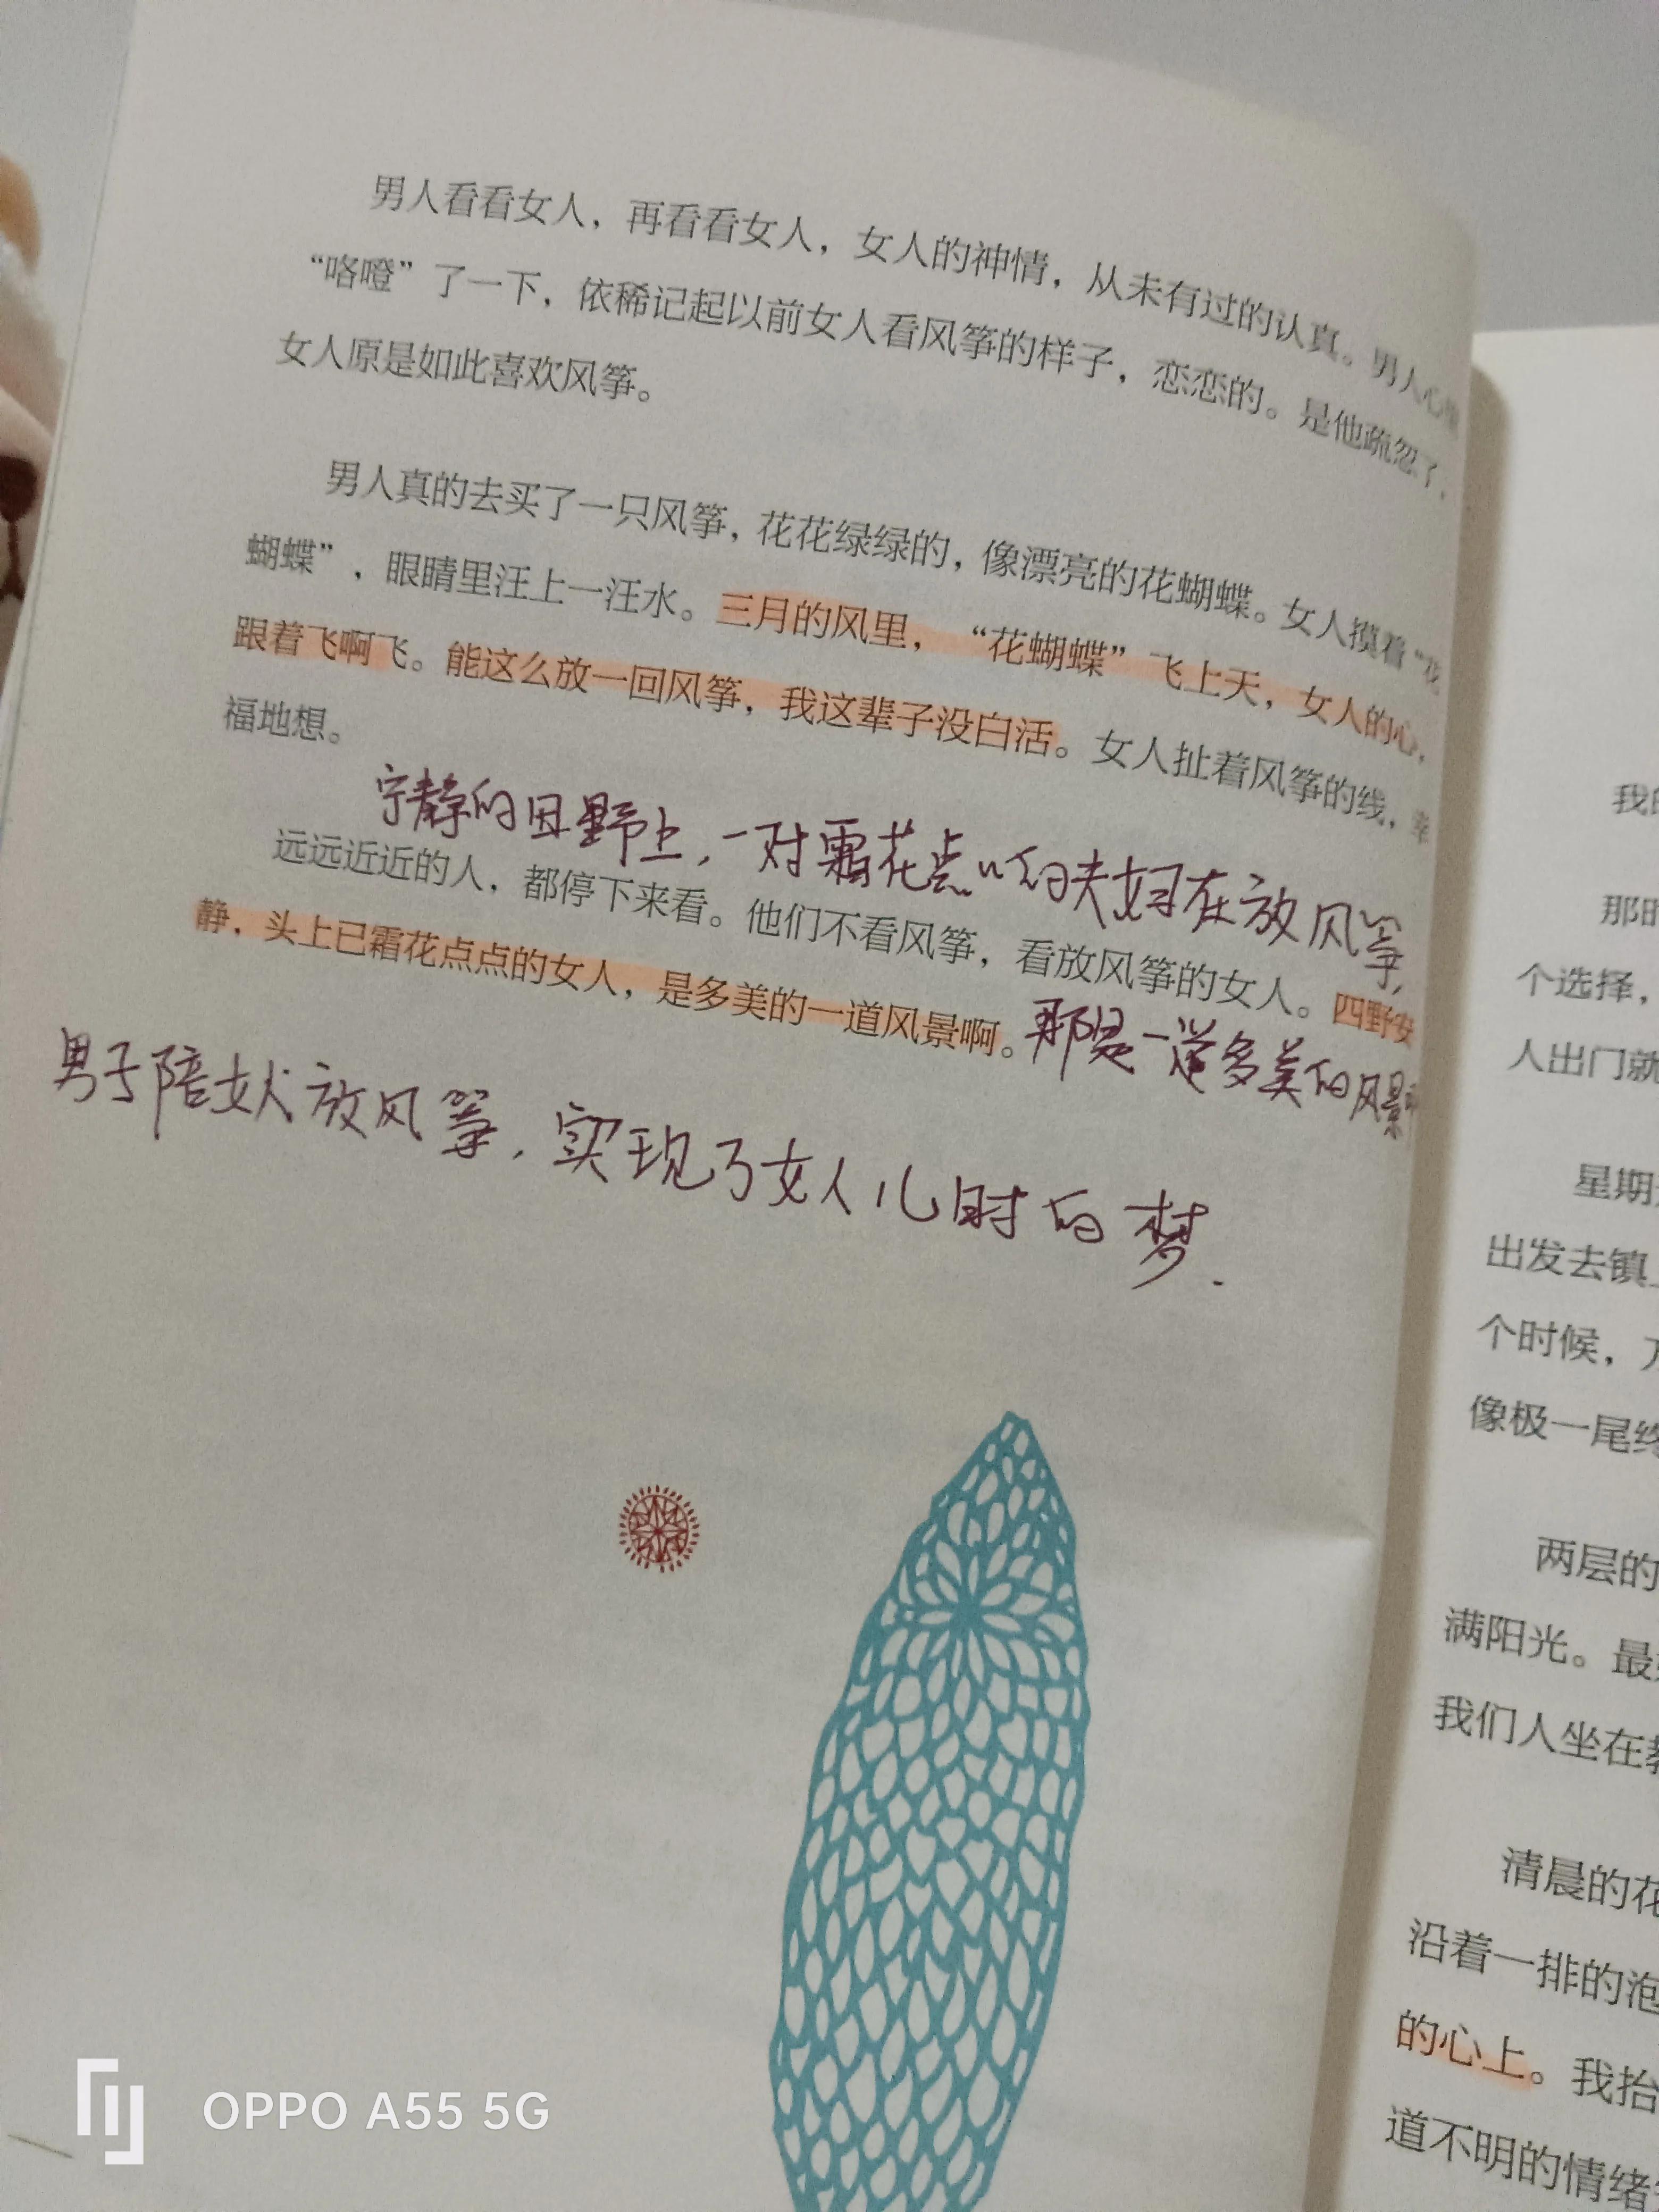 男人看看女人，再看看女人，女人的神情，从未有过的认真。男人心
“咯噔”了一下，依稀记起以前女人看风筝的样子，恋恋的。是他疏忽了，
女人原是如此喜欢风筝。
男人真的去买了一只风筝，花花绿绿的，像漂亮的花蝴蝶。女人摸着“花
蝴蝶”，眼睛里汪上一汪水。三月的风里，“花蝴蝶”飞上天，女人的心，
跟着飞啊飞。能这么放一回风筝，我这辈子没白活。女人扯着风筝的线，幸
福地想。
宁静的田野上，一对霜花点〃的夫妇在放风筝，
远远近近的人，都停下来看。他们不看风筝，看放风筝的女人。四野安
静，头上已霜花点点的女人，是多美的一道风景啊。
那是一道多美的风景
男子陪女人放风筝，实现了女人儿时的梦.
我的
那时
个选择，
人出门就
星期
出发去镇
个时候，
像极一尾终
两层的
满阳光。最
我们人坐在教
清晨的花
沿着一排的泡
的心上。我抬
道不明的情绪
OPPO A55 5G